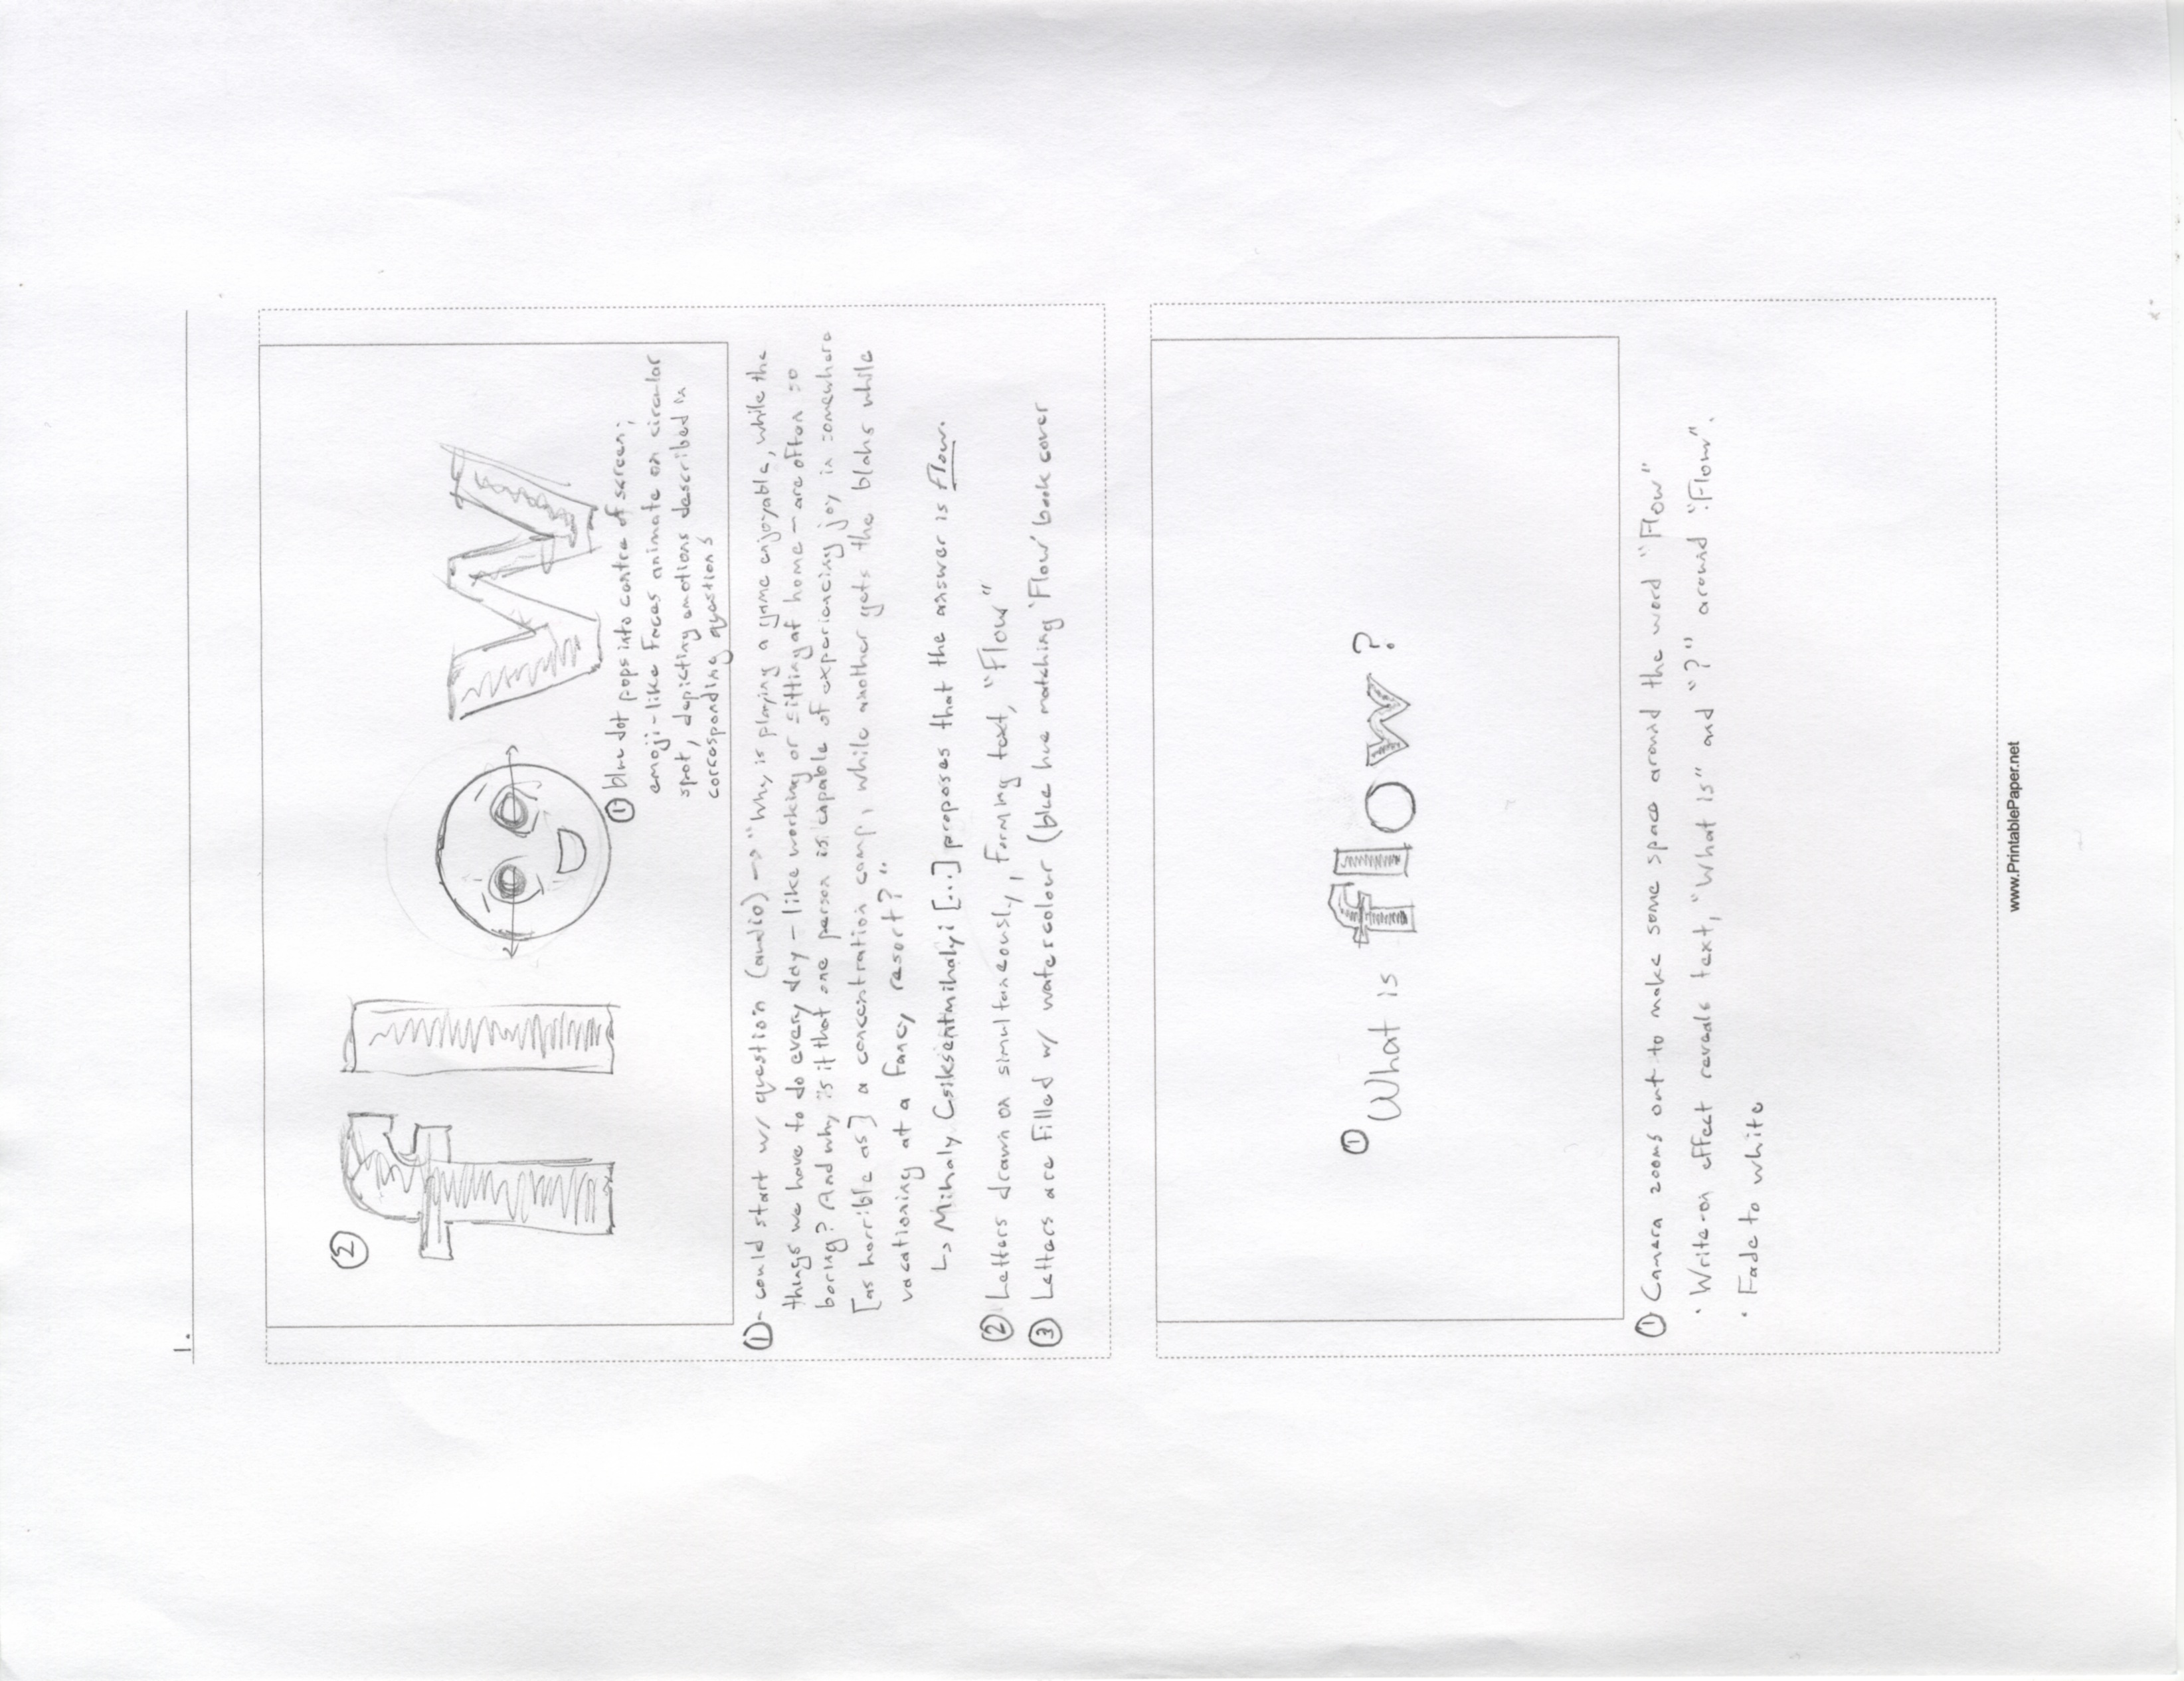 1.
②
flow
① blue dot pops into centre of screen;
emoji-like faces animate on circular
spot, depicting emotions described in
corresponding questions
① - could start w/ question (audio) → "Why is playing a game enjoyable, while the
things we have to do every day – like working or sitting at home – are often so
boring? And why is it that one person is capable of experiencing joy in somewhere
[as horrible as] a concentration camp, while another gets the blahs while
vacationing at a fancy resort?".
↳ Mihaly Csiksentmihalyi [...] proposes that the answer is Flow.
② Letters drawn on simultaneously, forming text, "Flow"
③ Letters are filled w/ watercolour (blue hue matching 'Flow' book cover
① What is flow?
① Camera zooms out to make some space around the word "Flow"
· Write-on effect reveals text, "What is" and "?" around "Flow".
· Fade to white
www.PrintablePaper.net